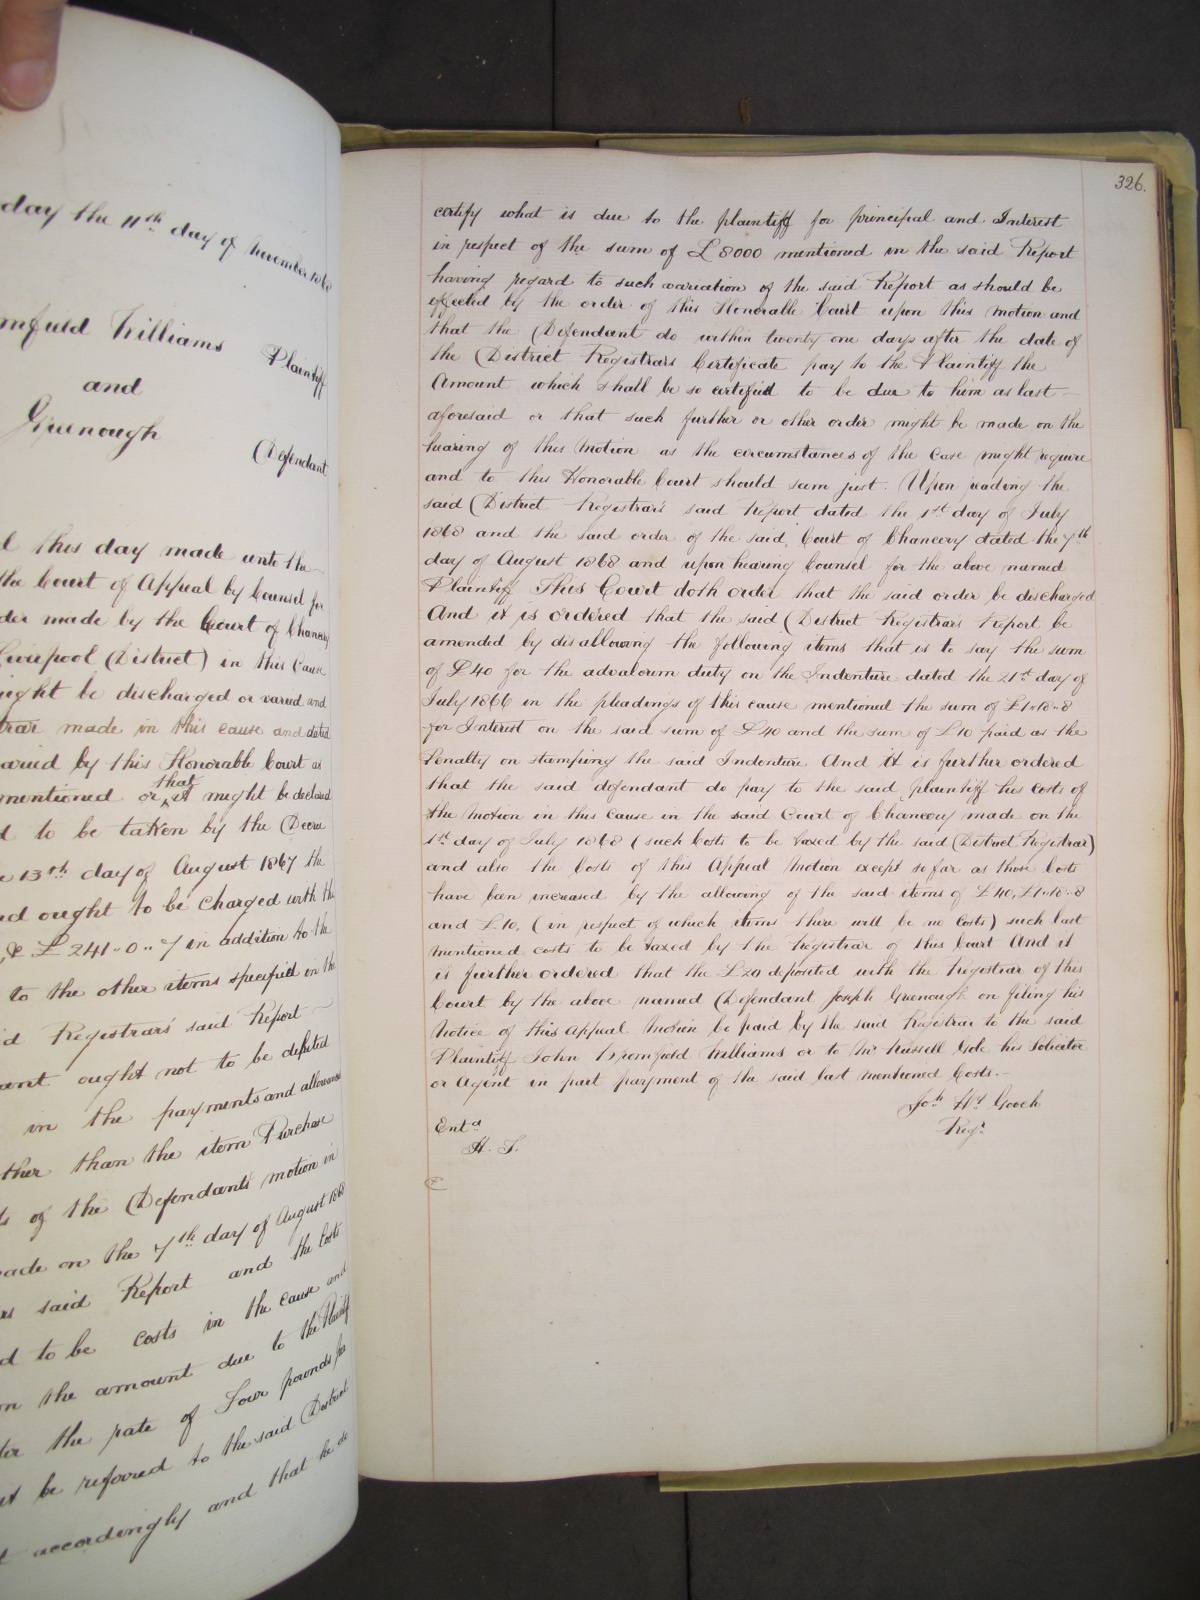 day the 11th day of November 1868
Williams Plaintiff
and
Greenough
Defendant
this day made unto the
the Court of Appeal by Counsel for
der made by the Court of Chancery
Liverpool District) in this Cause
ight be discharged or varied and
trar made in this cause and dated
aried by this Honorable Court as
mentioned or that it might be declared
d to be taken by the Decree
e 13th day of August 1867 the
nd ought to be charged with the
& £241..0..7 in addition to the
to the other items specified in the
id Registrars' said Report
ant ought not to be debited
in the payments and allowances
ther than the item Purchase
ts of the Defendants motion in
ade on the 7th day of August 1868
said Report and the Costs
d to be costs in the cause and
on the amount due to the Plaintiff
der the rate of Four pounds per
it be referred to the said District
t accordingly and that he do
326.
certify what is due to the plaintiff for principal and Interest
in respect of the sum of £8000 mentioned in the said Report
having regard to such variation of the said Report as should be
effected by the order of this Honorable Court upon this motion and
that the Defendant do within twenty one days after the date of
the District Registrars Certificate pay to the Plaintiff the
Amount which shall be so certified to be due to him as last
aforesaid or that such further or other order might be made on the
hearing of this Motion as the circumstances of the case might require
and to this Honorable Court should seem just. Upon reading the
said District Registrar's said Report dated the 1st day of July
1868 and the said order of the said Court of Chancery dated the 7th
day of August 1868 and upon hearing Counsel for the above named
Plaintiff This Court doth order that the said order be discharged
And it is ordered that the said District Registrars Report be
amended by disallowing the following items that is to say the sum
of £40 for the advalorum duty on the Indenture dated the 21st day of
July 1866 in the pleadings of this cause mentioned the sum of £1..18..8
for Interest on the said sum of £40 and the sum of £10 paid as the
Penalty on stamping the said Indenture And it is further ordered
that the said defendant do pay to the said plaintiff his costs of
the Motion in this cause in the said Court of Chancery made on the
1st day of July 1868 (such Costs to be taxed by the said District Registrar)
and also the Costs of this Appeal Motion except so far as those Costs
have been increased by the allowing of the said items of £40, £1..18..8
and £10, (in respect of which items there will be no Costs) such last
mentioned costs to be taxed by the Registrar of this Court And it
is further ordered that the £20 deposited with the Registrar of this
Court by the above named Defendant Joseph Greenough on filing his
Notice of this Appeal Motion be paid by the said Registrar to the said
Plaintiff John Bromfield Williams or to Mr Russell Gole his Solicitor
or Agent in part payment of the said last mentioned Costs.
Josh Wd Gooch
Regr
Entd
H. S.